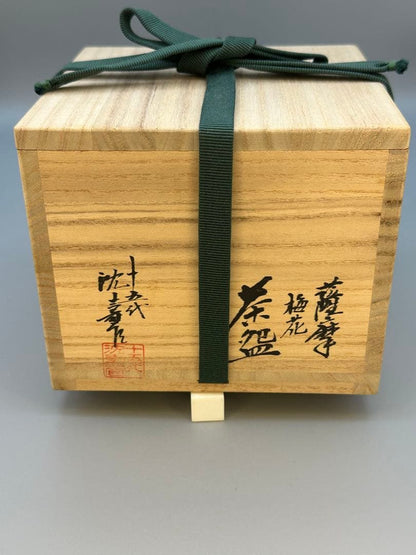 薩摩
梅花
茶盌
十五代
沈壽官